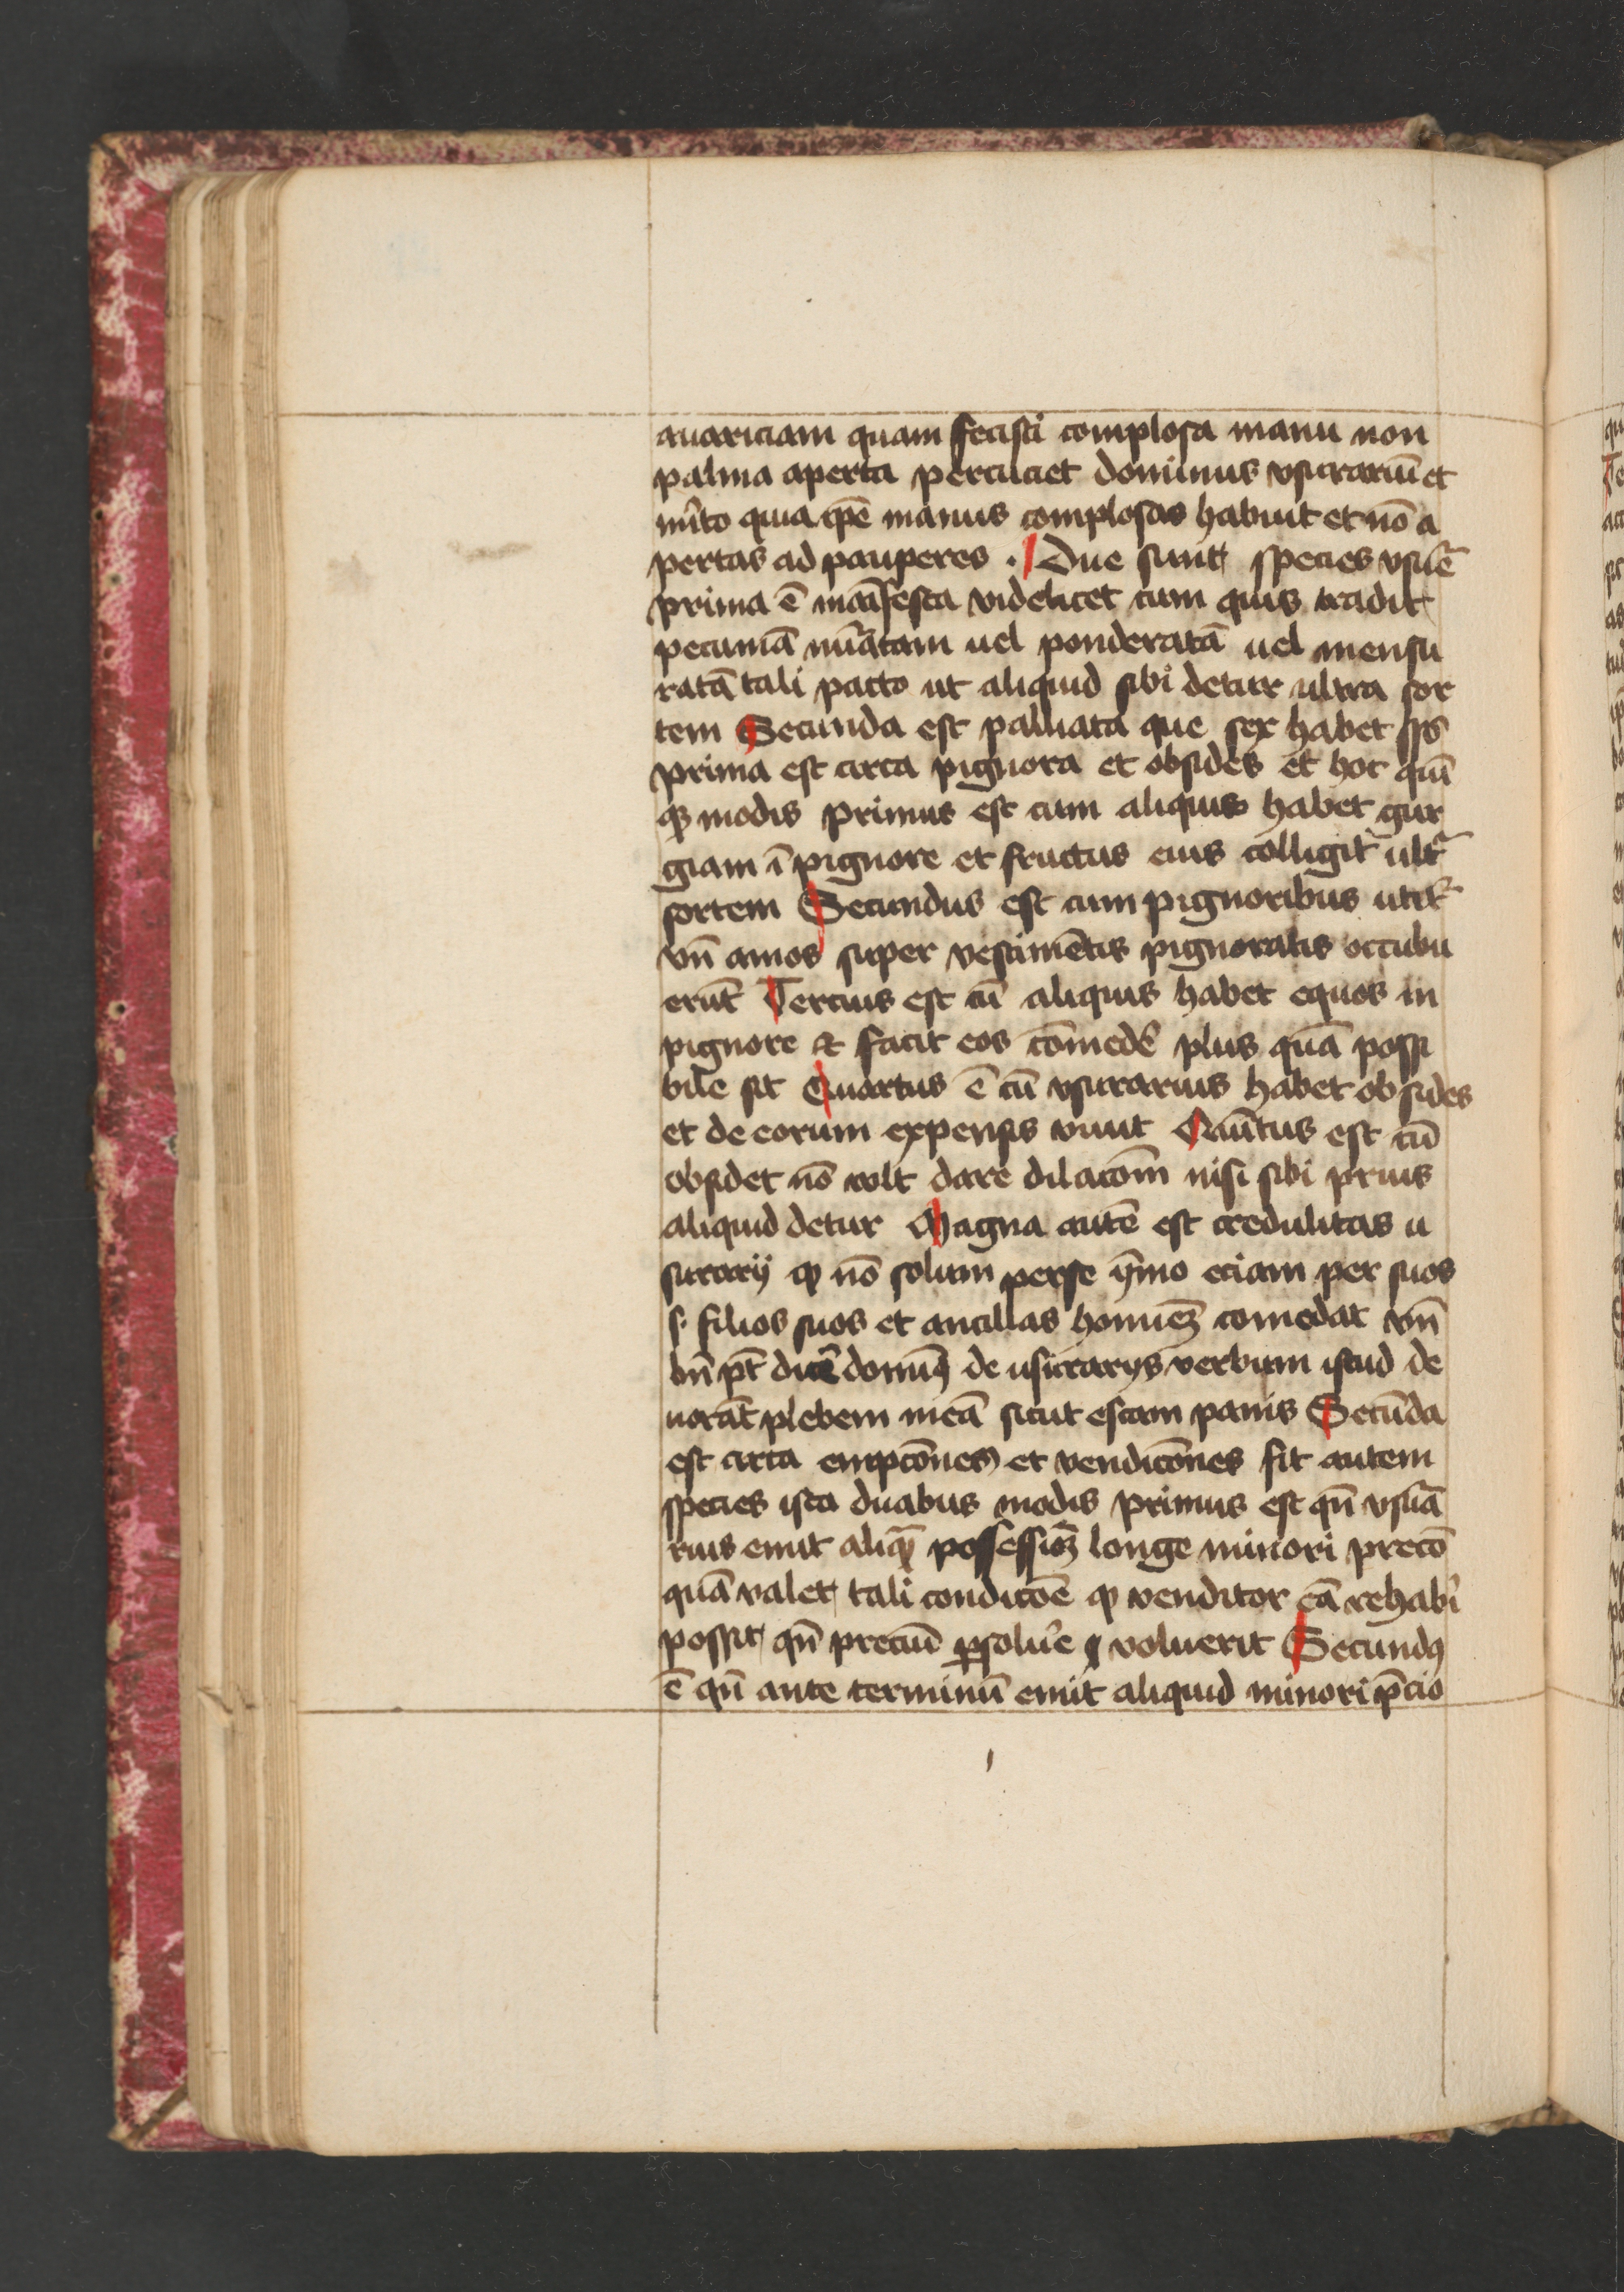 auariciam quam fecisti complosa manu non
palma aperta percuciet dominus vsurariū et
mĩto quia ipē manus complosas habuit et nō a
pertas ad pauperes . Due sunt species vsuͤ
prima ē māifesta videlicet cum quis tradit
pecuniā nũatam uel ponderatā uel mensu
ratā tali pacto ut aliquid sibi detur ultra sor
tem Secunda est palliata que sex habet sp̄s
prima est circa pignora et obsides et hoc quī
qꝫ modis primus est cum aliquis habet gur
giam ī pignore et fructus eius colligit ult᷑
sortem Secundus est cum pignoribus utit᷑
vn̄ amos super vestimētis pignoratis occubu
erūt Tercius est cū aliquis habet equos in
pignore et facit eos cōmedē plus quā possi
bile sit Quartus ē cū vsurarius habet obsides
et de eorum expensis viuit Quītus est cū
obsidet nō volt dare dilacōm nisi sibi prius
aliquid detur Magna autē est credulitas u
surarij ꝙ nō solum per se ȳmo eciam per suos
s. filios suos et ancillas homīeꝫ comedat vn̄
bn̄ pt̄ dicē domīꝰ de usurarijs verbum istud de
uorāt plebem meā sicut escam panis Secūda
est circa empcōnes et vendicōnes fit autem
species ista duabus modis primus est qn̄ vsura
rius emit aliqꝫ possessiōꝫ longe minori precō
quā valet tali condicōē ꝙ venditor eā rehabē
possit qn̄ preciū ꝑsoluē voluerit Secundꝰ
ē qn̄ ante terminū emit aliquid minori p̄cio